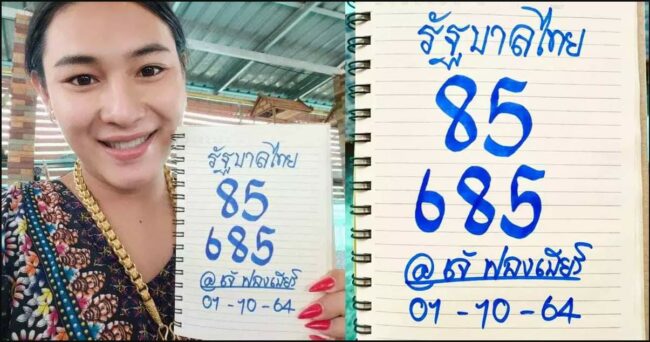 รัฐบาลไทย
85
685
@เจ้ ฟองเบียร์
01-10-64
รัฐบาลไทย
85
685
@เจ้ ฟองเบียร์
01-10-64